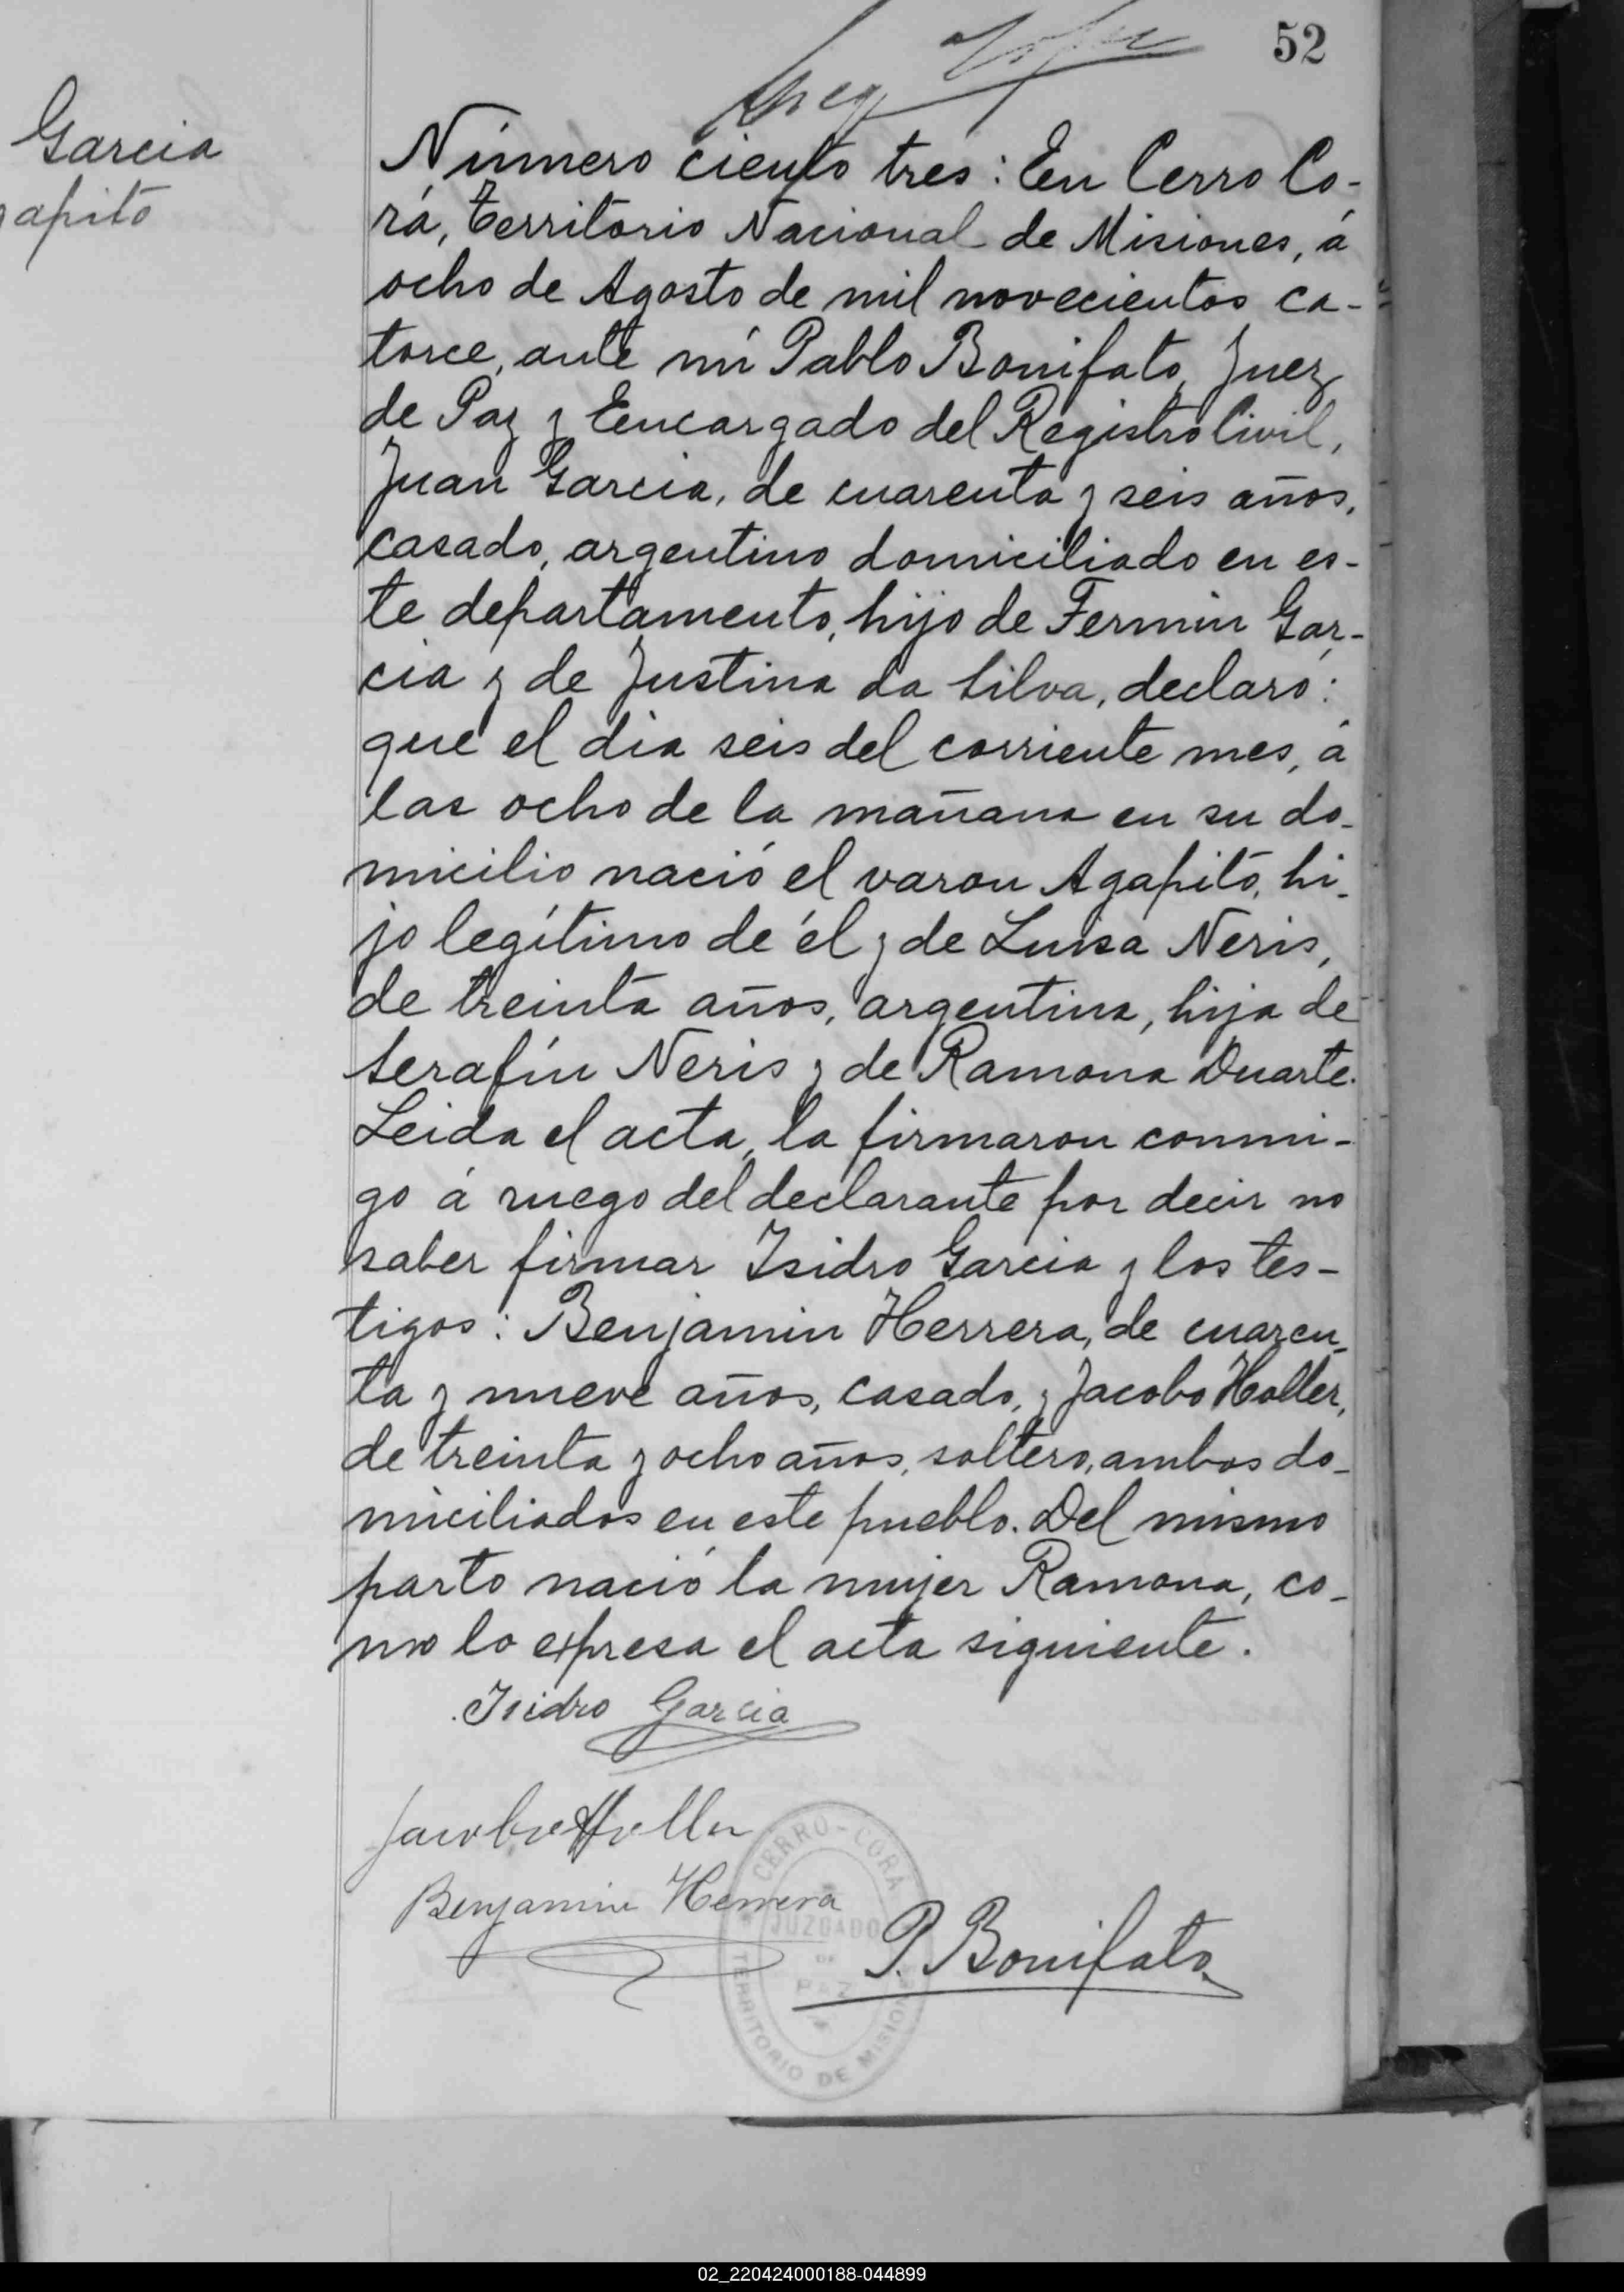 52
Garcia
gapito
Número ciento tres: En Cerro Co-
rá, territorio Nacional de Misiones, á
ocho de Agosto de mil novecientos ca-
torce, ante mí Pablo Bonifato, Juez
de Paz y Encargado del Registro Civil,
Juan Garcia, de cuarenta y seis años,
casado, argentino domiciliado en es-
te departamento, hijo de Fermin Gar-
cia y de Justina da Silva, declaró:
que el dia seis del corriente mes, á
las ocho de la mañana en su do-
micilio nació el varon Agapito, hi-
jo legítimo de él y de Luisa Neris,
de treinta años, argentina, hija de
Serafín Neris y de Ramona Duarte.
Leida el acta, la firmaron conmi-
go á ruego del declarante por decir no
saber firmar Isidro Garcia y los tes-
tigos: Benjamin Herrera, de cuaren-
ta y nueve años, casado, y Jacobo Holler,
de treinta y ocho años, soltero, ambos do-
miciliados en este pueblo. Del mismo
parto nació la mujer Ramona, co-
mo lo expresa el acta siguiente.
Isidro Garcia
Jacobo Holler
Benjamin Herrera
P. Bonifato
CERRO-CORA
JUZGADO
DE
PAZ
TERRITORIO DE MISIONES
02_220424000188-044899